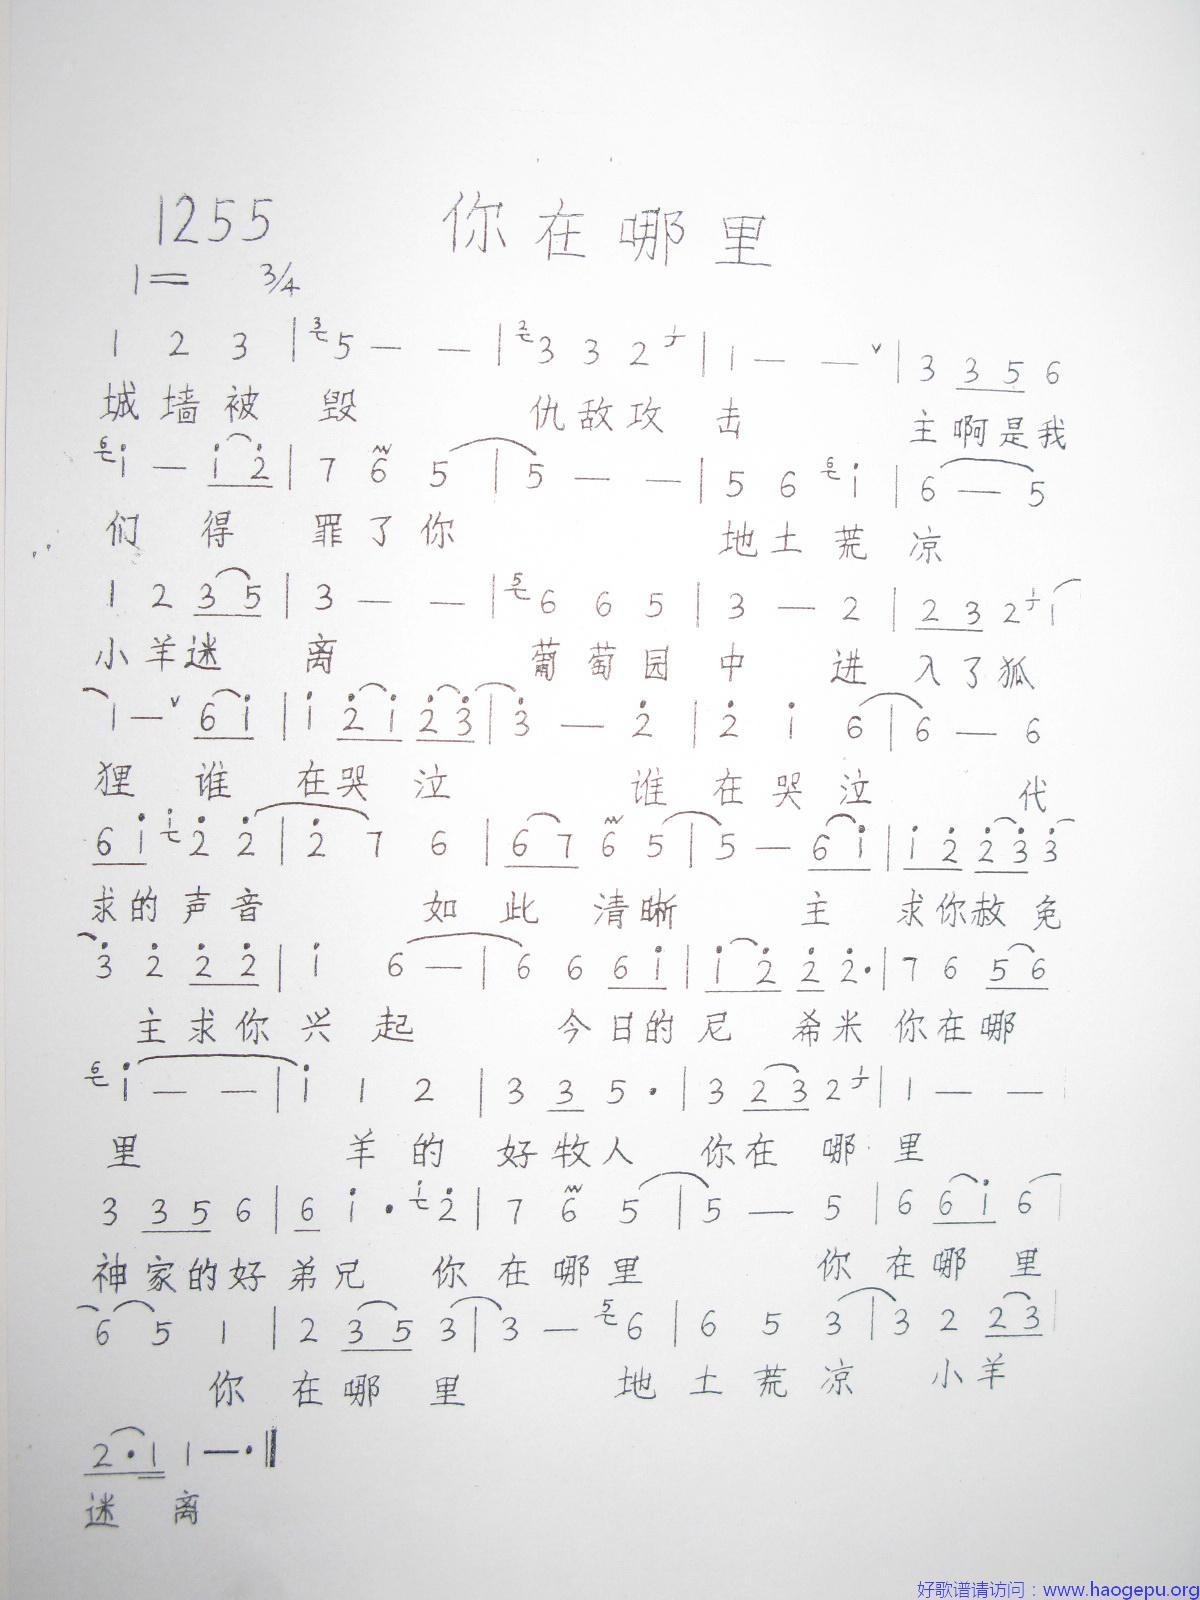 1255 你在哪里
1= 3/4
1 2 3 | 3 5 — — | 2 3 3 2 1 | 1 — — ∨ | 3 3 5 6
城墙被 毁 仇敌攻 击 主啊是我
6 i — i 2 | 7 6 5 | 5 — — | 5 6 6 i | 6 — 5
们 得 罪了你 地土荒 凉
1 2 3 5 | 3 — — | 5 6 6 5 | 3 — 2 | 2 3 2 1 1
小羊迷 离 葡萄园 中 进 入了狐
1 — ∨ 6 i | i 2 i 2 3 | 3 — 2 | 2 i 6 | 6 — 6
狸 谁 在哭 泣 谁 在哭 泣 代
6 i i 2 2 | 2 7 6 | 6 7 6 5 | 5 — 6 i | i 2 2 3 3
求的声音 如 此 清晰 主 求你赦免
3 2 2 2 | i 6 — | 6 6 6 i | i 2 2 2 · | 7 6 5 6
主求你 兴 起 今日的 尼 希米 你在哪
6 i — — | i 1 2 | 3 3 5 · | 3 2 3 2 1 | 1 — —
里 羊 的 好牧人 你在 哪 里
3 3 5 6 | 6 i · i 2 | 7 6 5 | 5 — 5 | 6 6 i 6
神家的好 弟兄 你 在哪里 你 在哪 里
6 5 1 | 2 3 5 3 | 3 — 5 6 | 6 5 3 | 3 2 2 3
你 在哪 里 地 土荒凉 小羊
2 · 1 1 — · ‖
迷 离
好歌谱请访问：www.haogepu.org